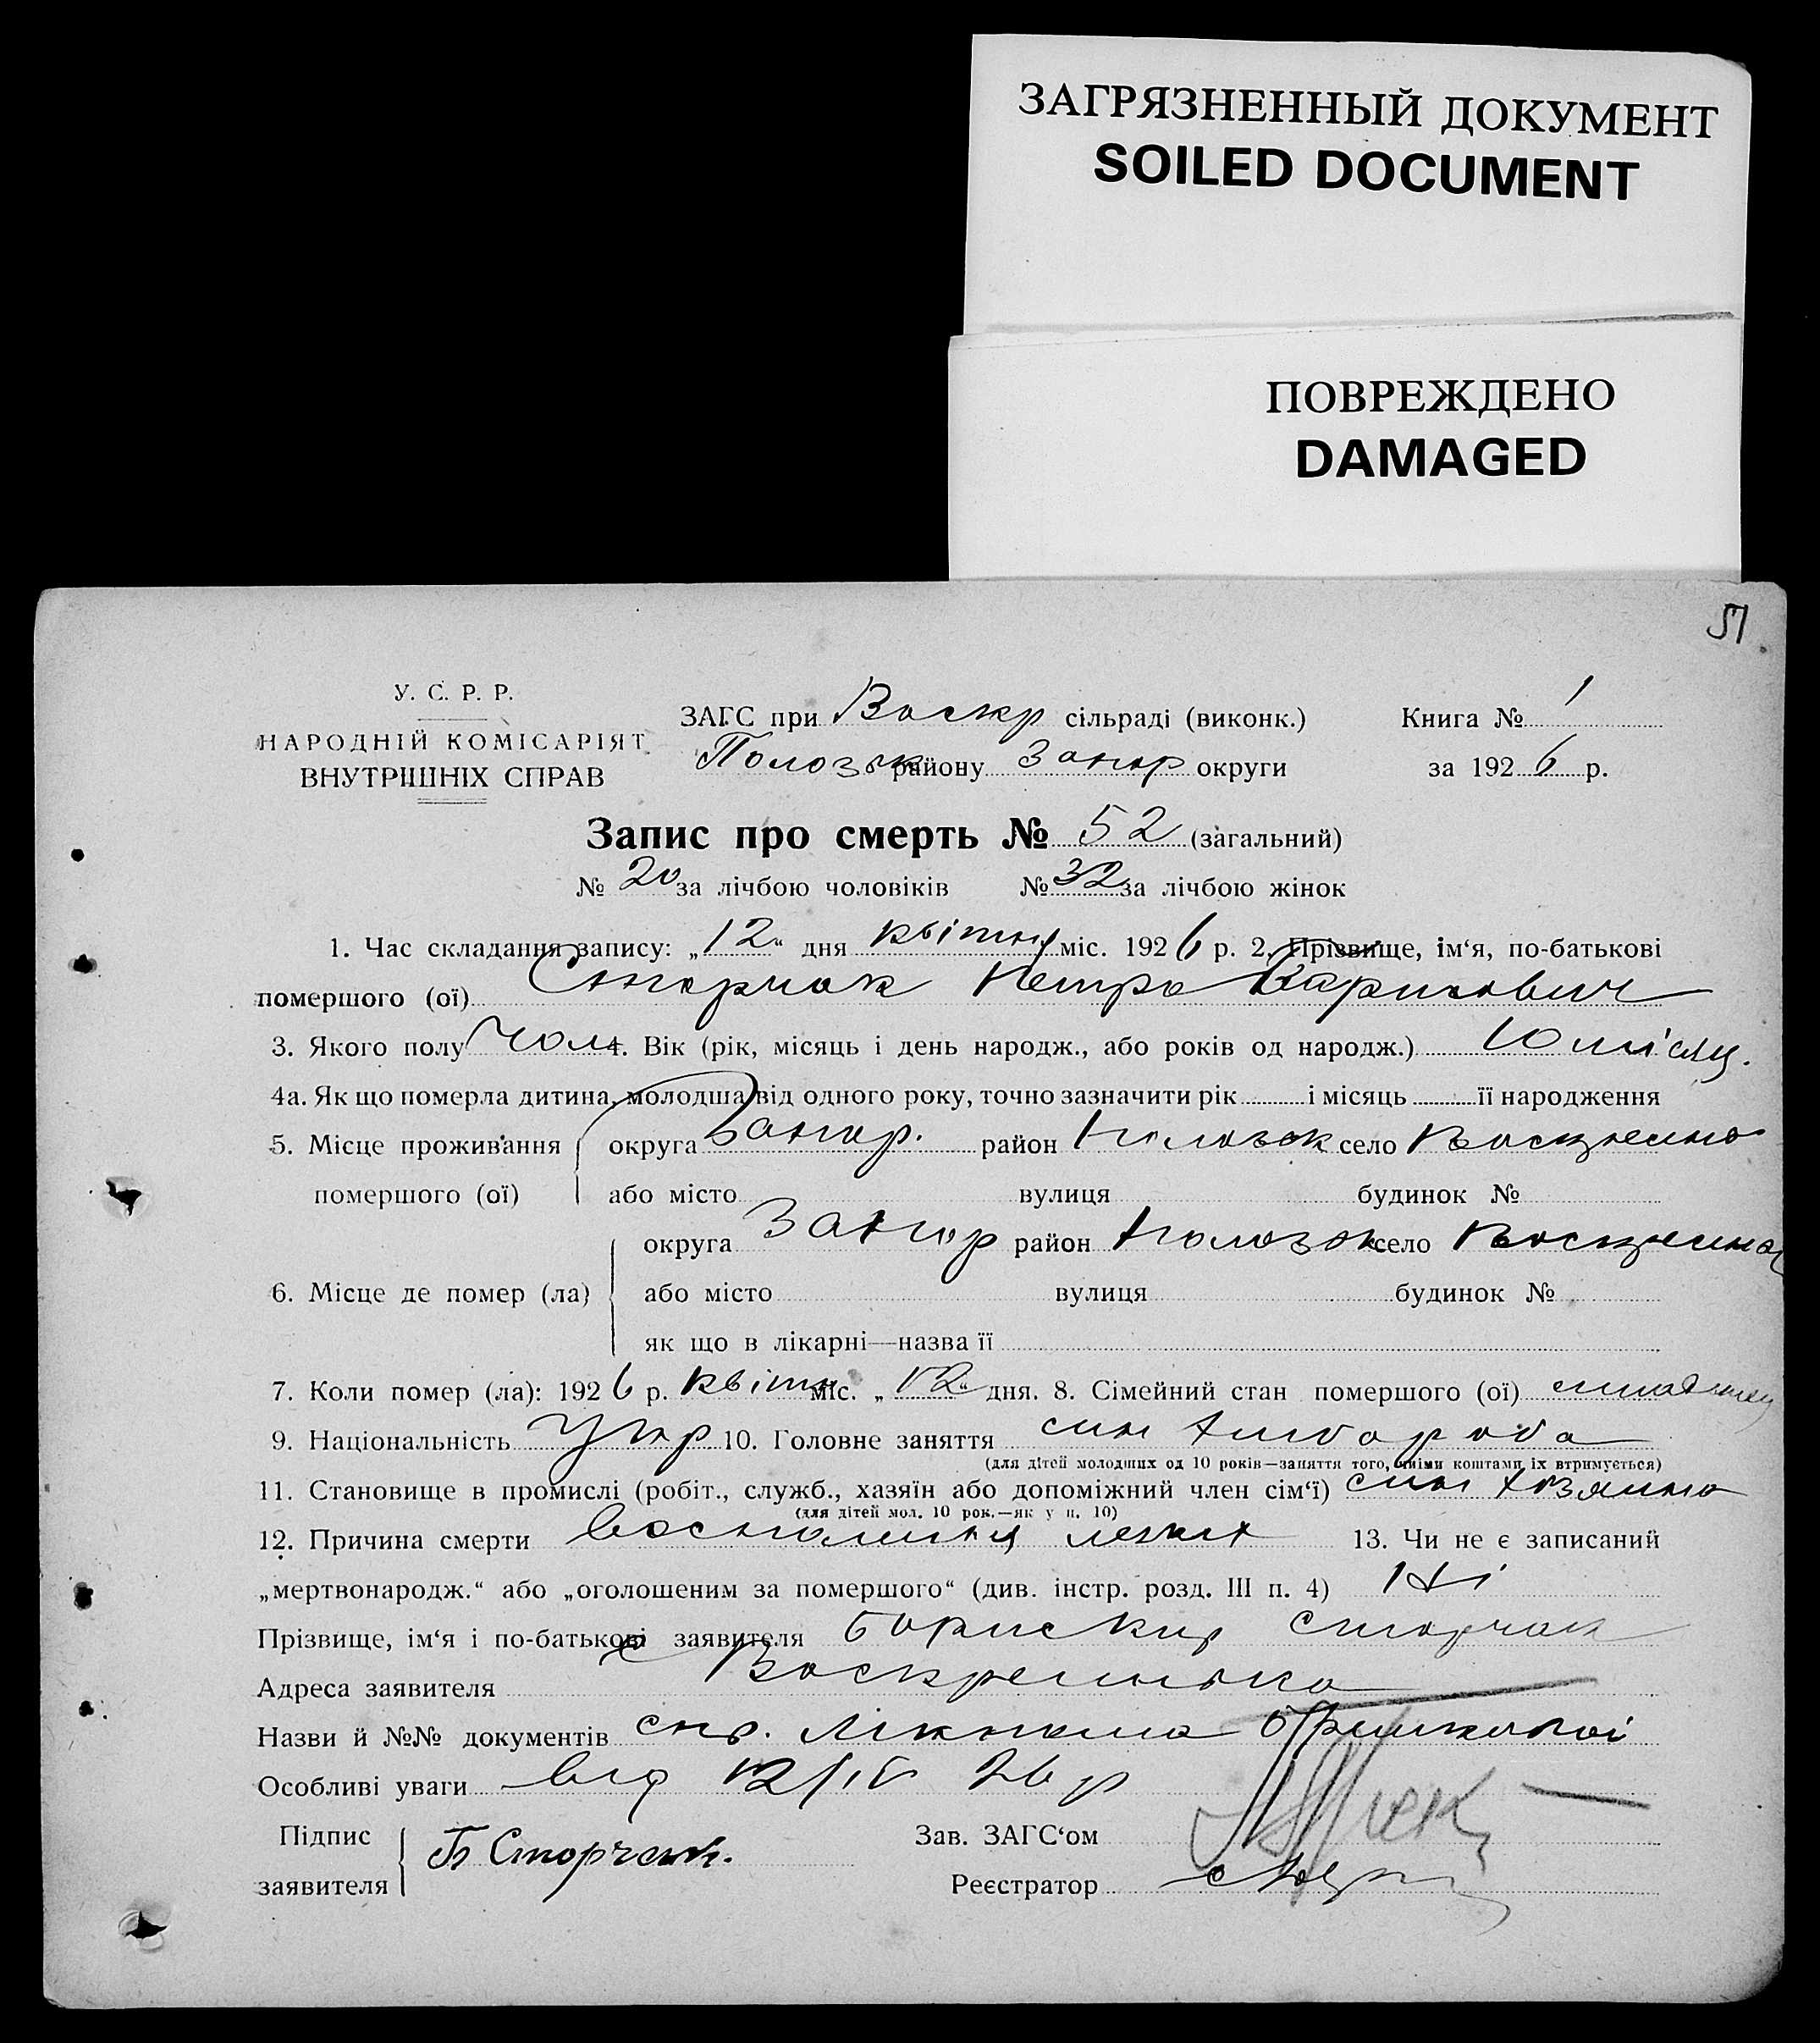 ЗАГРЯЗНЕННЫЙ ДОКУМЕНТ
SOILED DOCUMENT
ПОВРЕЖДЕНО
DAMAGED
51
У. С. Р. Р.
НАРОДНІЙ КОМІСАРІЯТ
ВНУТРІШНІХ СПРАВ
ЗАГС при Воскр сільраді (виконк.)
Полозьк району Запор округи
Книга № 1
за 1926 р.
Запис про смерть № 52 (загальний)
№ 20 за лічбою чоловіків № 32 за лічбою жінок
1. Час складання запису: „12“ дня квітня міс. 1926 р. 2. Прізвище, ім‘я, по-батькові
помершого (ої) Сторчак Петро
3. Якого полу чол 4. Вік (рік, місяць і день народж., або років од народж.) 10 місяц.
4а. Як що померла дитина, молодша від одного року, точно зазначити рік і місяць її народження
5. Місце проживання округа Запор. район Полозьк село
помершого (ої) або місто вулиця будинок №
округа Запор район Полозьк село
6. Місце де помер (ла) або місто вулиця будинок №
як що в лікарні—назва її
7. Коли помер (ла): 1926 р. квітн міс. „12“ дня. 8. Сімейний стан помершого (ої)
9. Національність Укр 10. Головне заняття син хлібороба
(для дітей молодших од 10 років—заняття того, чиїми коштами їх втримується)
11. Становище в промислі (робіт., служб., хазяїн або допоміжний член сім‘ї) син хозяина
(для дітей мол. 10 рок.—як у п. 10)
12. Причина смерти воспаления легких 13. Чи не є записаний
„мертвонародж.“ або „оголошеним за помершого“ (див. інстр. розд. III п. 4) Ні
Прізвище, ім‘я і по-батькові заявителя Сторчак
Адреса заявителя Воскресенка
Назви й №№ документів спр. лікпома
Особливі уваги від 12/IV 26 р
Підпис
заявителя Б Сторчак.
Зав. ЗАГС‘ом
Реєстратор